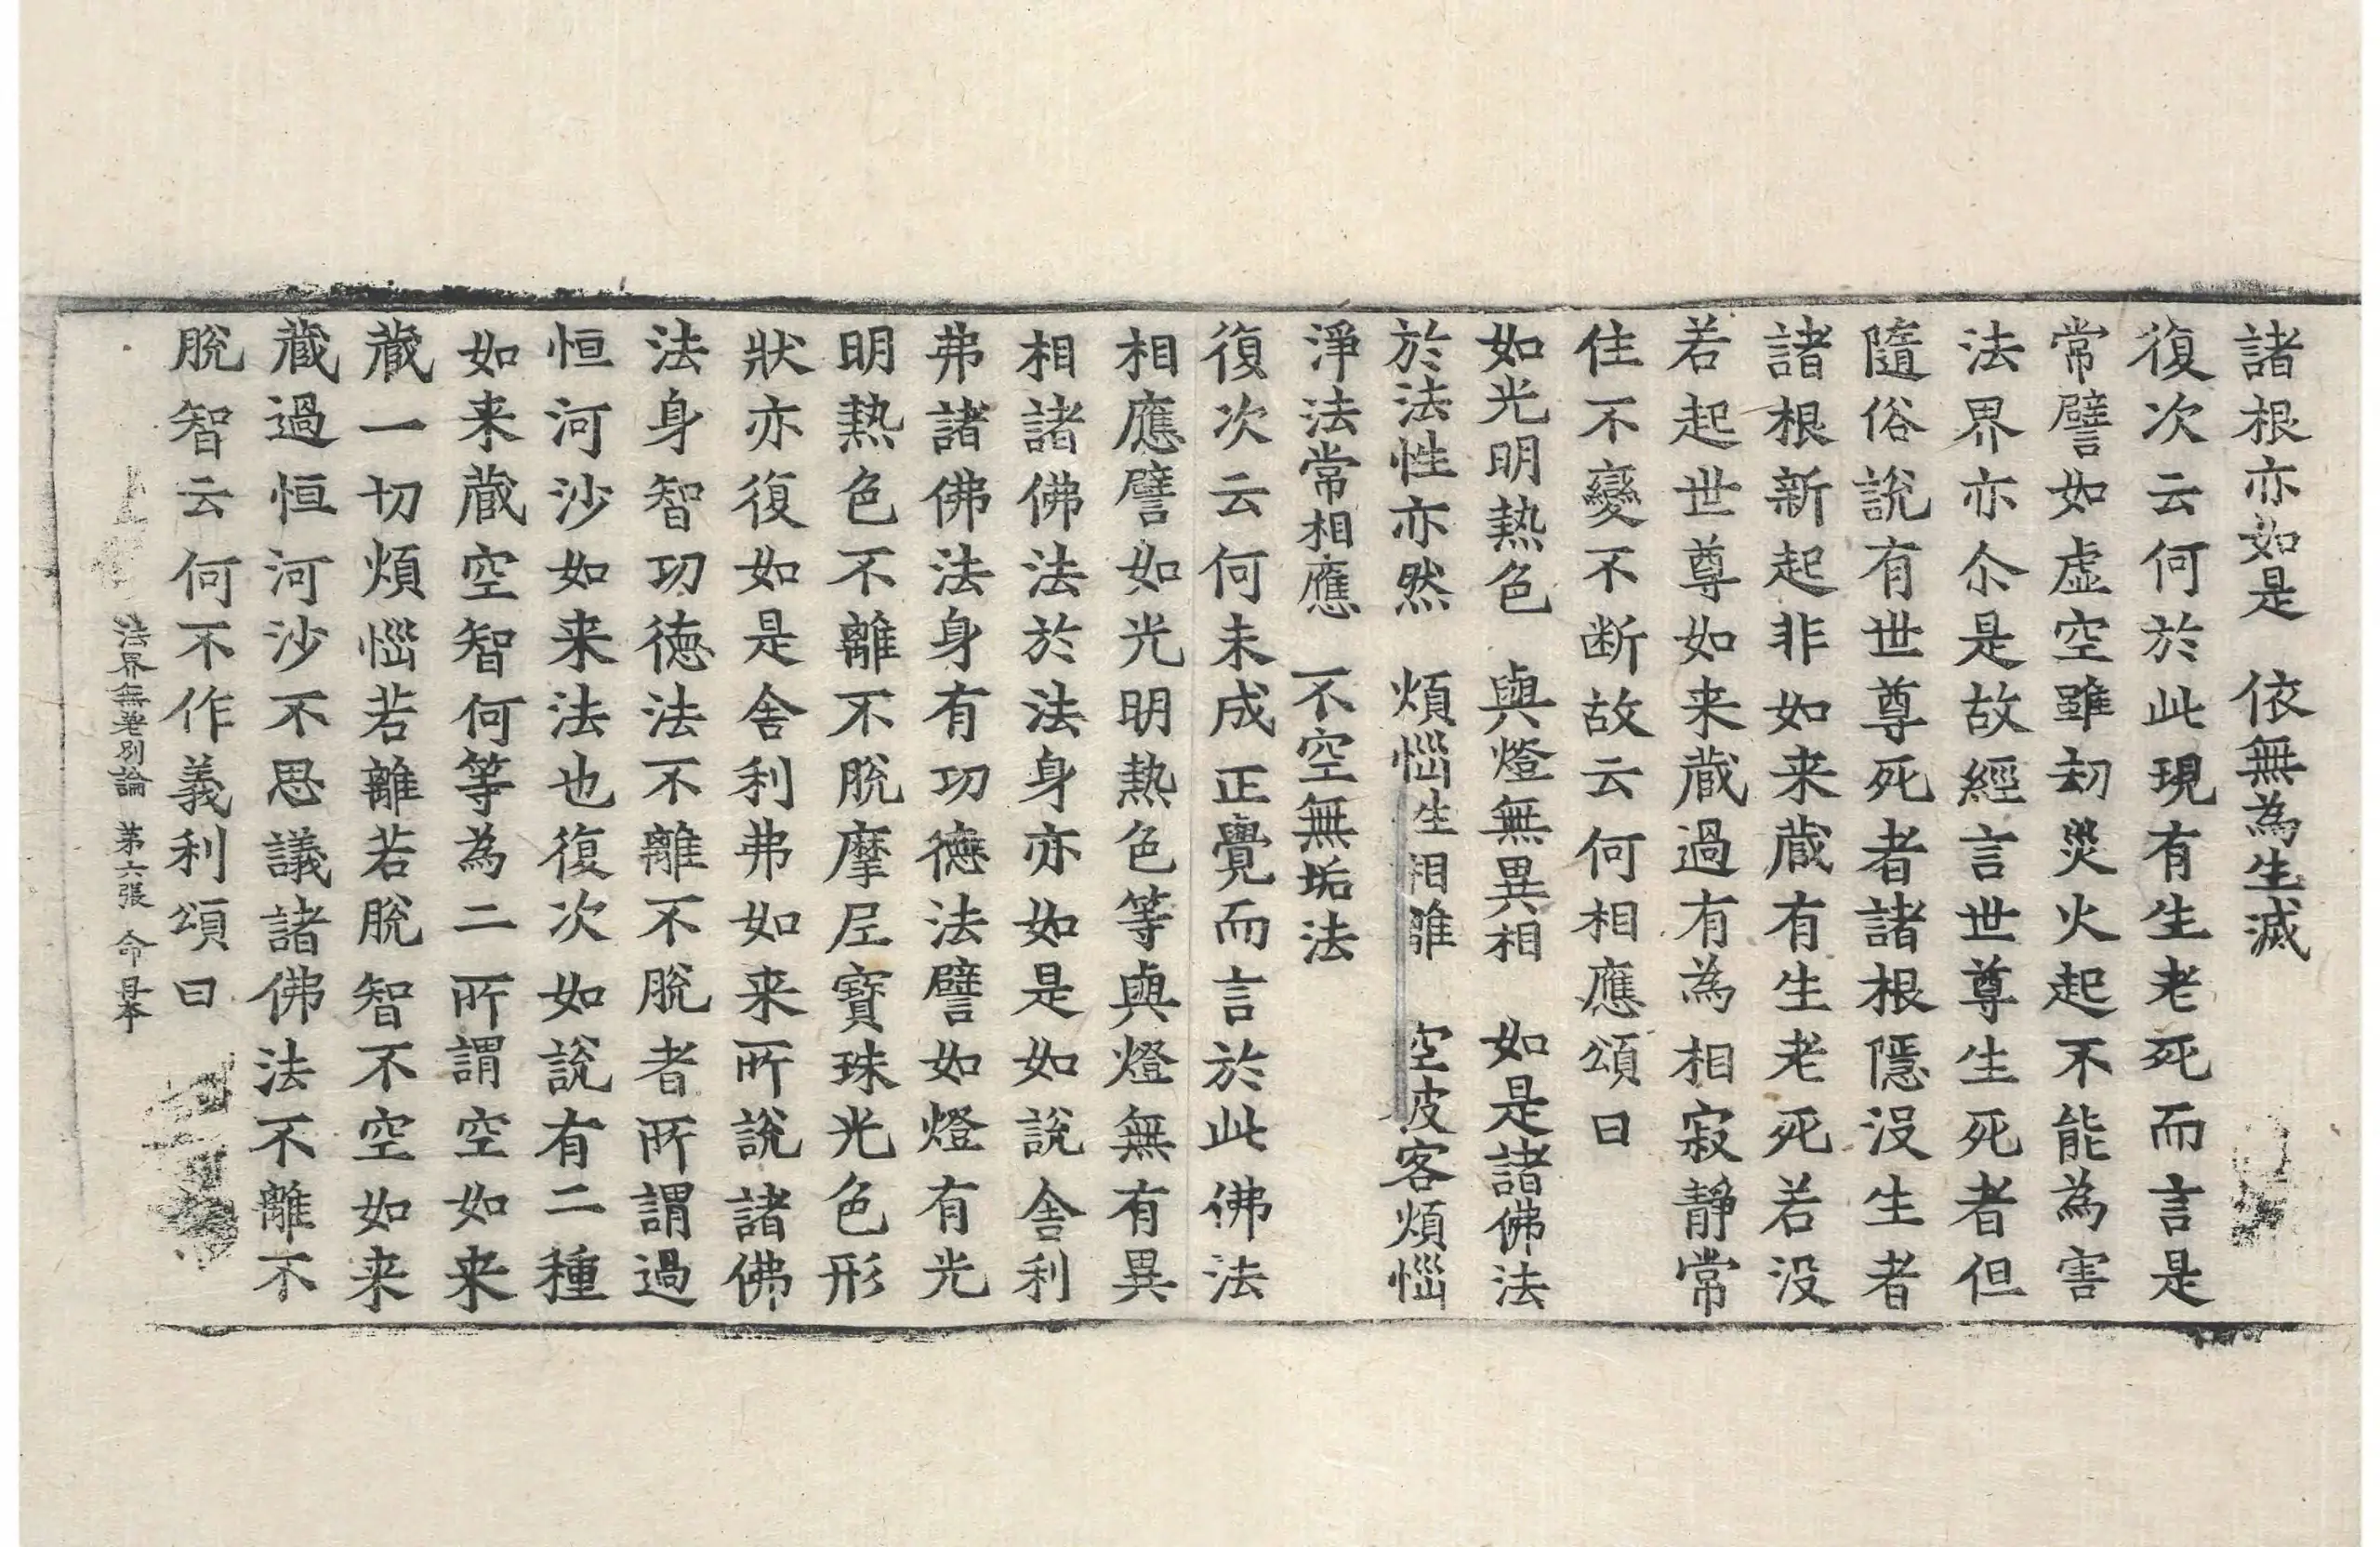 諸根亦如是　依無為生滅
復次云何於此現有生老死而言是
常譬如虛空雖劫災火起不能為害
法界亦尒是故經言世尊生死者但
隨俗說有世尊死者諸根隱沒生者
諸根新起非如来蔵有生老死若沒
若起世尊如来蔵過有為相寂靜常
住不變不断故云何相應頌曰
如光明熱色　與燈無異相　如是諸佛法
於法性亦然　煩惱生相離　空彼客煩惱
淨法常相應　不空無垢法
復次云何未成正覺而言於此佛法
相應譬如光明熱色等與燈無有異
相諸佛法於法身亦如是如說舍利
弗諸佛法身有功德法譬如燈有光
明熱色不離不脫摩尼寶珠光色形
狀亦復如是舍利弗如来所說諸佛
法身智功德法不離不脫者所謂過
恒河沙如来法也復次如說有二種
如来蔵空智何等為二所謂空如来
蔵一切煩惱若離若脫智不空如来
蔵過恒河沙不思議諸佛法不離不
脫智云何不作義利頌曰
法界無差別論　第六張　命